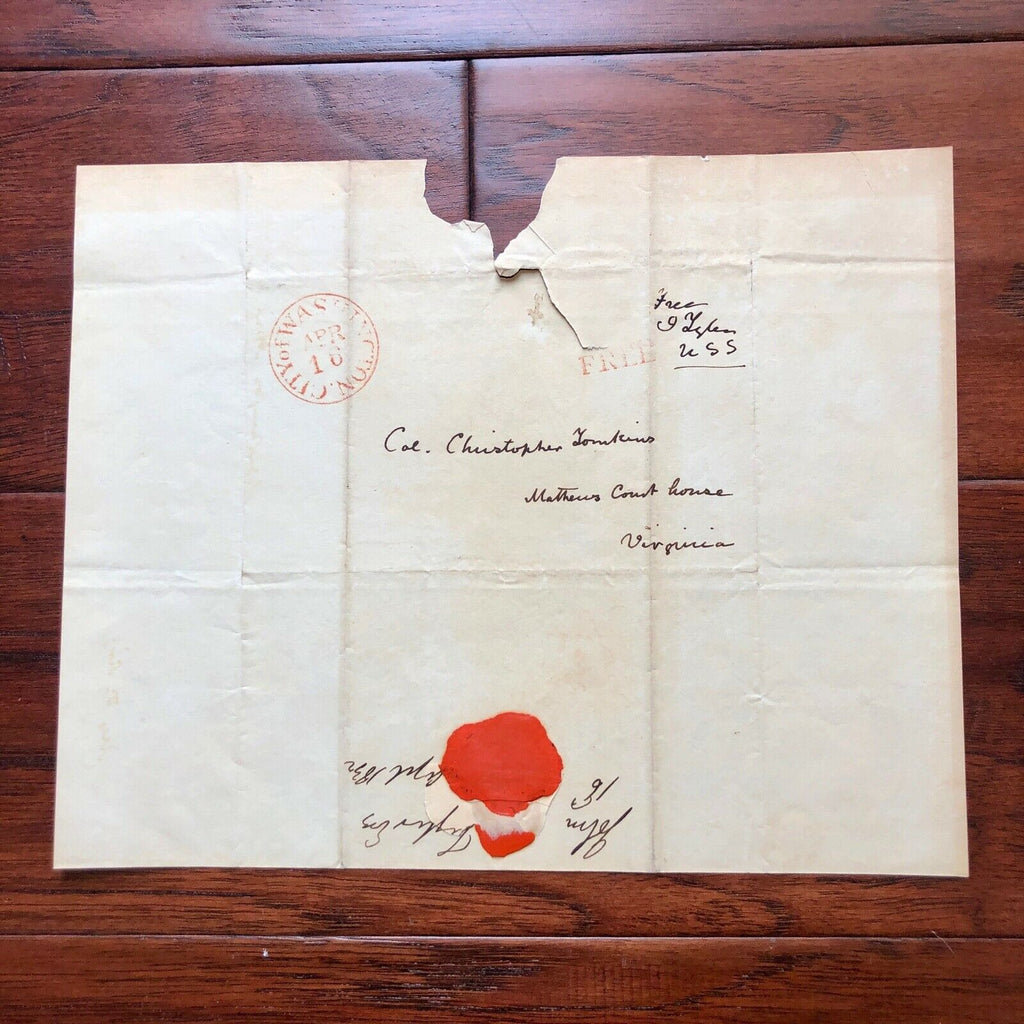 CITY of WASHINGTON.
APR
16
Free
J Tyler
U S S
FREE
Col. Christopher Tomkins
Mathews Court house
Virginia
John Tyler Esq
16 Apl 1832